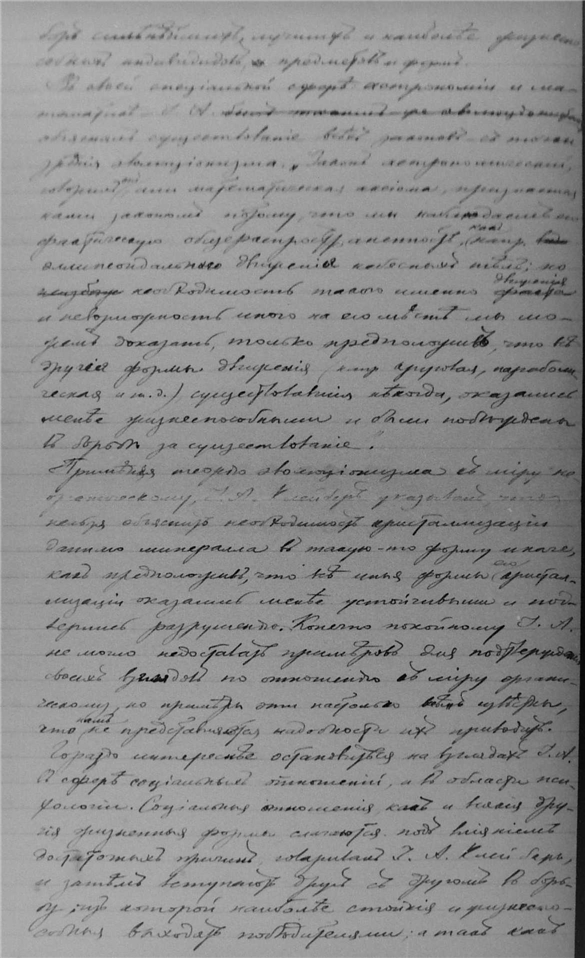 борѣ сильнѣйшихъ, лучшихъ и наиболѣе жизнеспо-
собныхъ индивидовъ, предметовъ и формъ.
Въ своей спеціальной сферѣ астрономіи и ма-
тематики І. А.
объяснялъ существованіе всѣхъ законовъ съ точки
зрѣнія эволюціонизма. „Законъ астрономическій,
говорилъ онъ, или математическая аксіома, признается
нами закономъ потому, что мы наблюдаемъ его
фактическую общераспространенность, какъ напр.
эллипсоидальнаго движенія небесныхъ тѣлъ; но
необходимость такого именно движенія
и невозможность иного на его мѣстѣ мы мо-
жемъ доказать, только предположивъ, что всѣ
другія формы движенія (напр. круговая, параболи-
ческая и т. д.) существовавшія нѣкогда, оказались
менѣе жизнеспособными и были побѣждены
въ борьбѣ за существованіе".
Примѣняя теорію эволюціонизма къ міру не-
органическому, І. А. Клейберъ указывалъ, что
нельзя объяснить необходимость кристаллизаціи
даннаго минералла въ такую-то форму иначе,
какъ предположивъ, что всѣ иныя формы его кристал-
лизаціи оказались менѣе устойчивыми и под-
верглись разрушенію. Конечно покойному І. А.
не могло недоставать примѣровъ для подтвержденія
своихъ взглядовъ по отношенію къ міру органи-
ческому, но примѣры эти настолько извѣстны,
что намъ не представляется надобности ихъ приводить.
Гораздо интереснѣе остановиться на взглядахъ І. А.
въ сферѣ соціальныхъ отношеній, а въ области пси-
хологіи. Соціальныя отношенія какъ и всякія дру-
гія жизненныя формы слагаются подъ вліяніемъ
достаточныхъ причинъ, говаривалъ І. А. Клейберъ,
и затѣмъ вступаютъ другъ съ другомъ въ борь-
бу, изъ которой наиболѣе стойкія и жизнеспо-
собныя выходятъ побѣдителями; а такъ какъ